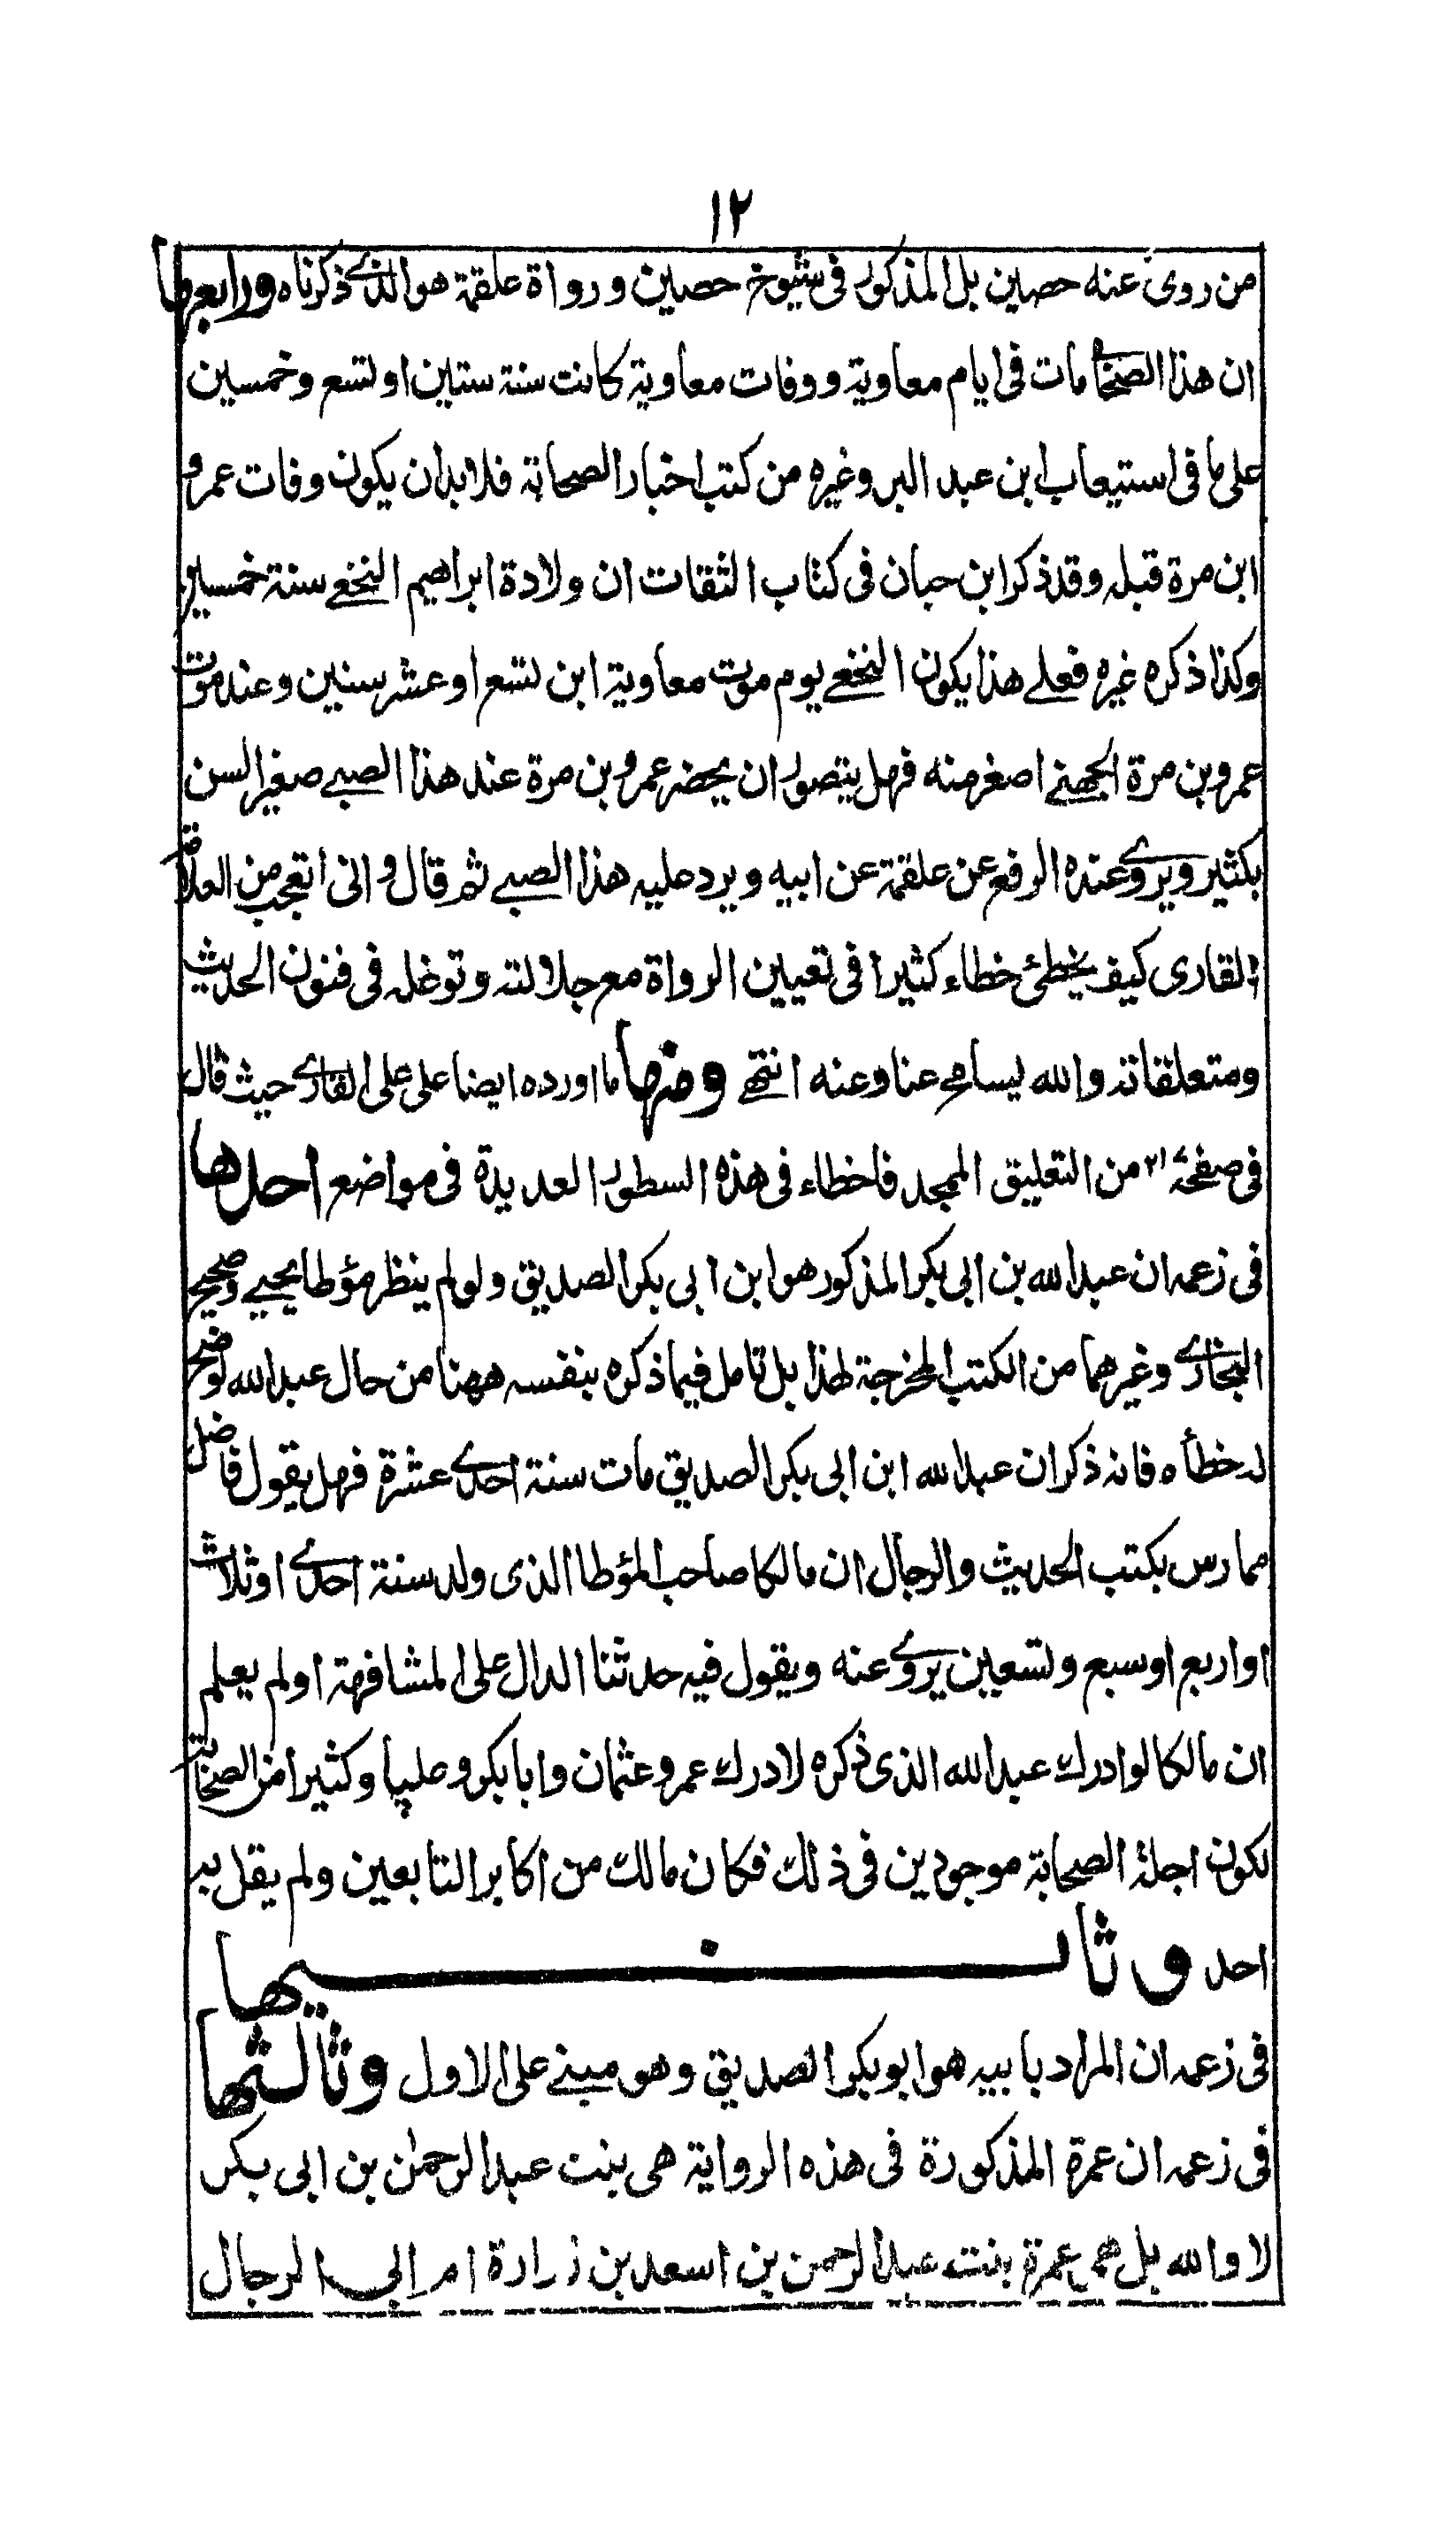 ١٢
من روى عنه حصين بل المذكور فى شيوخ حصين ورواة علقمة هو الذى ذكرناه ورابعها
ان هذا الصحابى مات فى ايام معاوية ووفات معاوية كانت سنة ستين او تسع وخمسين
على ما فى استيعاب ابن عبد البر وغيره من كتب اخبار الصحابة فلا بد ان يكون وفات عمرو
ابن مرة قبله وقد ذكر ابن حبان فى كتاب الثقات ان ولادة ابراهيم النخعى سنة خمسين
وكذا ذكره غيره فعلى هذا يكون النخعى يوم موت معاوية ابن تسع او عشر سنين وعند موت
عمرو بن مرة الجهنى اصغر منه فهل يتصور ان يحضر عمرو بن مرة عند هذا الصبى صغير السن
بكثير ويروى عنده الرفع عن علقمة عن ابيه ويرد عليه هذا الصبى ثم قال وانى اتعجب من العلامة
القارى كيف يخطئ خطاء كثيرا فى تعيين الرواة مع جلالته وتوغله فى فنون الحديث
ومتعلقاته والله يسامح عنا وعنه انتهى ومنها ما اورده ايضا على على القارى حيث قال
فى صفحة ٢١ من التعليق الممجد فاخطاء فى هذه السطور العديدة فى مواضع احدها
فى زعمه ان عبد الله بن ابى بكر المذكور هو ابن ابى بكر الصديق ولو لم ينظر مؤطا يحيى وصحيح
البخارى وغيرهما من الكتب المخرجة لهذا بل تامل فيما ذكره بنفسه ههنا من حال عبد الله لوضح
له خطأه فانه ذكر ان عبد الله ابن ابى بكر الصديق مات سنة احدى عشرة فهل يقول فاضل
ممارس بكتب الحديث والرجال ان مالكا صاحب المؤطا الذى ولد سنة احدى او ثلاث
او اربع او سبع وتسعين يروى عنه ويقول فيه حدثنا الدال على المشافهة او لم يعلم
ان مالكا لو ادرك عبد الله الذى ذكره لادرك عمر وعثمان وابا بكر وعليا وكثيرا من الصحابة
لكون اجلة الصحابة موجودين فى ذلك فكان مالك من اكابر التابعين ولم يقل به
احد وثانيها
فى زعمه ان المراد بابيه هو ابو بكر الصديق وهو مبنى على الاول وثالثها
فى زعمه ان عمرة المذكورة فى هذه الرواية هى بنت عبد الرحمن بن ابى بكر
لا والله بل هى عمرة بنت عبد الرحمن بن اسعد بن زرارة ام ابى الرجال